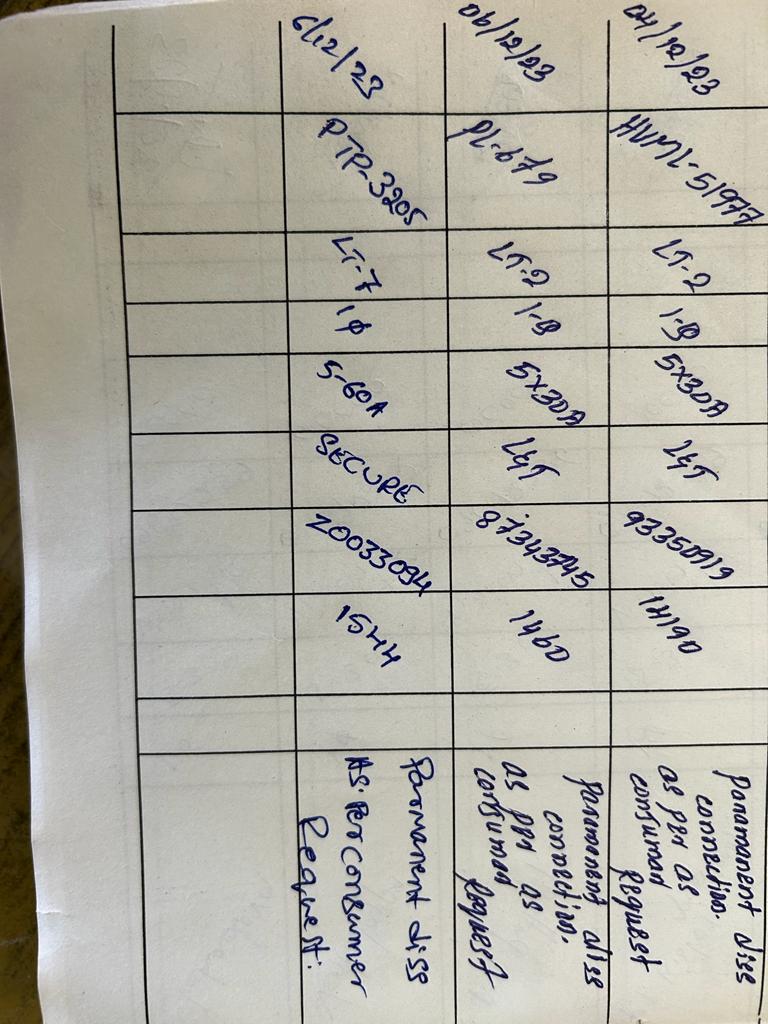 04/12/23 HVML-51977 LT-2 1-Ⴔ 5X30A L&T 93350919 14190 Paramanent diss
connection.
as per as
consumer
Request
06/12/23 PL-679 LT-2 1-Ⴔ 5X30A L&T 87343745 1460 Paramenent diss
connection.
as per as
consumer
Request
6/12/23 PTP-3205 LT-7 1Φ 5-60A SECURE Z0033094 1544 Parmanent diss
AS. Per consumer
Request.